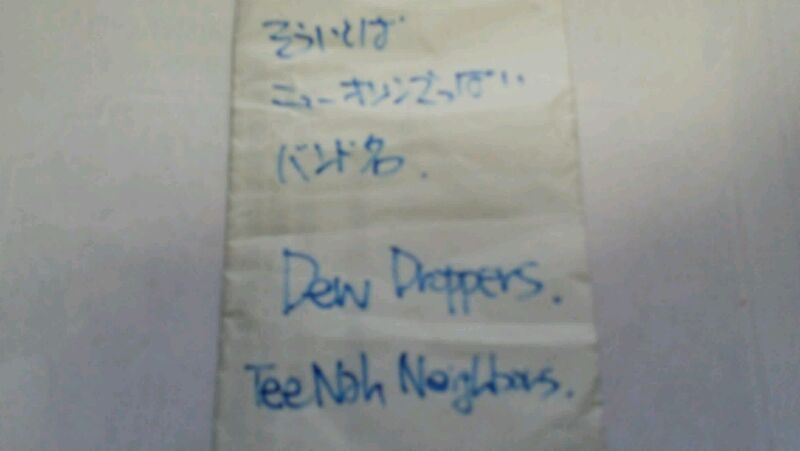 そういえば
ニューオリンズっぽい
バンド名.
Dew Droppers.
TeeNah Neighbors.